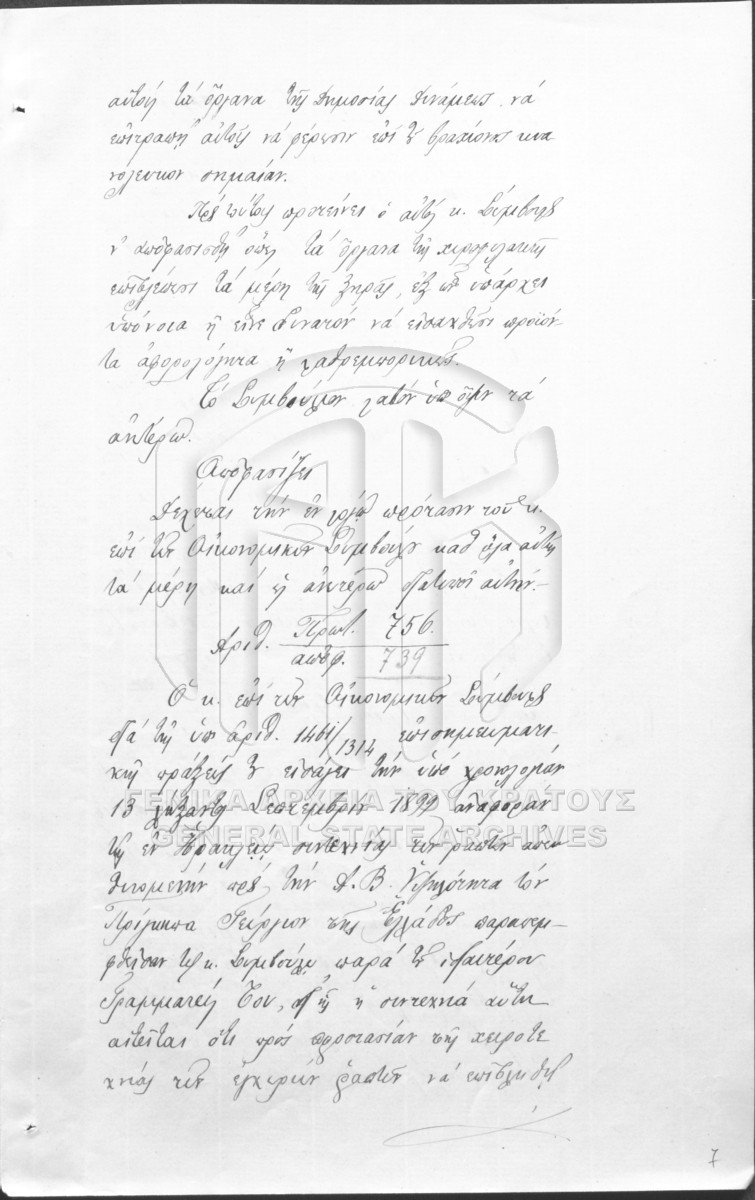 αὐτοῦ τὰ ὄργανα τῆς Δημοσίας Δυνάμεως, νὰ
ἐπιτραπῇ αὐτοῖς νὰ φέρωσιν ἐπὶ τοῦ βραχίονος κυα
νόλευκον σημαίαν.
Πρὸς τούτοις προτείνει ὁ αὐτὸς κ. Σύμβουλος
ν' ἀποφασισθῇ ὅπως τὰ ὄργανα τῆς χωροφυλακῆς
ἐπιβλέπωσι τὰ μέρη τῆς ξηρᾶς, ἐξ ὧν ὑπάρχει
ὑπόνοια ἢ εἶνε δυνατὸν νὰ εἰσαχθῶσι προϊόν-
τα ἀφορολόγητα ἢ λαθρεμπορικῶς.
Τὸ Συμβούλιον λαβὸν ὑπ' ὄψιν τὰ
ἀνωτέρω.
Ἀποφασίζει
Δέχεται τὴν ἐν λόγῳ πρότασιν τοῦ κ.
ἐπὶ τῶν Οἰκονομικῶν Συμβούλου καθ' ὅλα αὐτῆς
τὰ μέρη καὶ ὡς ἀνωτέρω διατυποῖ αὐτήν.-
Ἀριθ. Πρωτ. 756.
ἀποφ. 739
Ὁ κ. ἐπὶ τῶν Οἰκονομικῶν Σύμβουλος
διὰ τῆς ὑπ' ἀριθ. 1461/1314 ἐπισημειωματι-
κῆς πράξεώς του εἰσάγει τὴν ὑπὸ χρονολογίαν
13 λήξαντος Σεπτεμβρίου 1899 ἀναφορὰν
τῆς ἐν Ἡρακλείῳ συντεχνίας τῶν ῥαπτῶν ἀπευ
θυνομένην πρὸς τὴν Α. Β. Ὑψηλότητα τὸν
Πρίγκηπα Γεώργιον τῆς Ἑλλάδος παραπεμ-
φθεῖσαν τῷ κ. Συμβούλῳ παρὰ τοῦ ἰδιαιτέρου
Γραμματέως Του, δι' ἧς ἡ συντεχνία αὕτη
αἰτεῖται ὅτι πρὸς προστασίαν τῆς χειροτε
χνίας τῶν ἐγχωρίων ῥαπτῶν νὰ ἐπιβληθῇ
ΓΕΝΙΚΑ ΑΡΧΕΙΑ ΤΟΥ ΚΡΑΤΟΥΣ
GENERAL STATE ARCHIVES
7